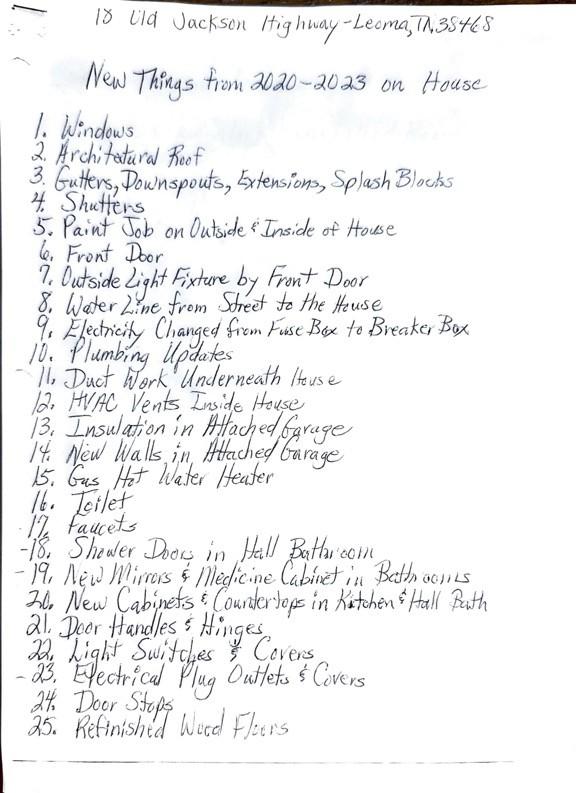 18 Old Jackson Highway-Leoma, TN. 38468
New Things from 2020-2023 on House
1. Windows
2. Architatural Roof
3. Gutters, Downspouts, Extensions, Splash Blocks
4. Shutters
5. Paint Job on Outside & Inside of House
6. Front Door
7. Outside Light Fixture by Front Door
8. Water Line from Street to the House
9. Electricity Changed from Fuse Box to Breaker Box
10. Plumbing Updates
11. Duct Work Underneath House
12. HVAC Vents Inside House
13. Insulation in Attached Garage
14. New Walls in Attached Garage
15. Gas Hot Water Heater
16. Toilet
17. Faucets
-18. Shower Doors in Hall Bathroom
-19. New Mirrors & Medicine Cabinet in Bathrooms
20. New Cabinets & Countertops in Kitchen & Hall Bath
21. Door Handles & Hinges
22. Light Switches & Covers
-23. Electrical Plug Outlets & Covers
24. Door Stops
25. Refinished Wood Floors